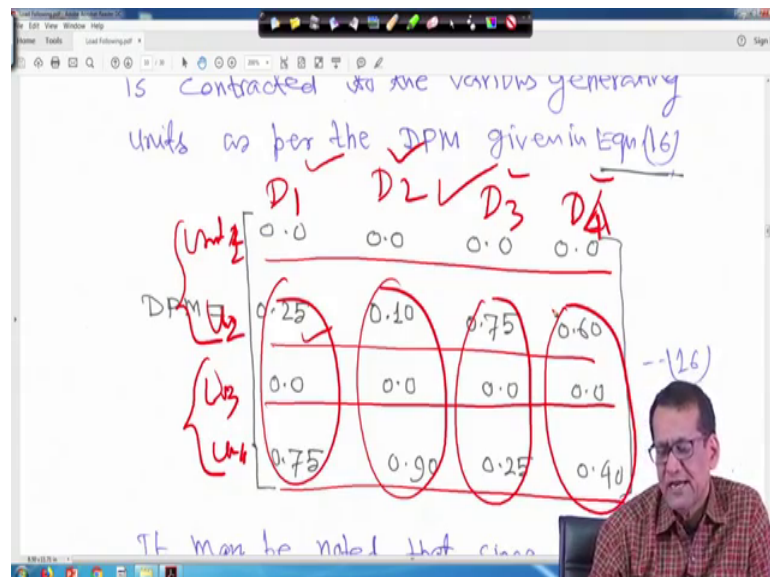 Load Following.pdf - Adobe Acrobat Reader DC
File Edit View Window Help
Home Tools Load Following.pdf × Sign
is contracted to the various generating
units as per the DPM given in Eqn(16)
D1 D2 D3 D4
Unit1 0.0 0.0 0.0 0.0
DPM = U2 0.25 0.10 0.75 0.60
--(16)
U3 0.0 0.0 0.0 0.0
U4 0.75 0.90 0.25 0.40
It may be noted that since